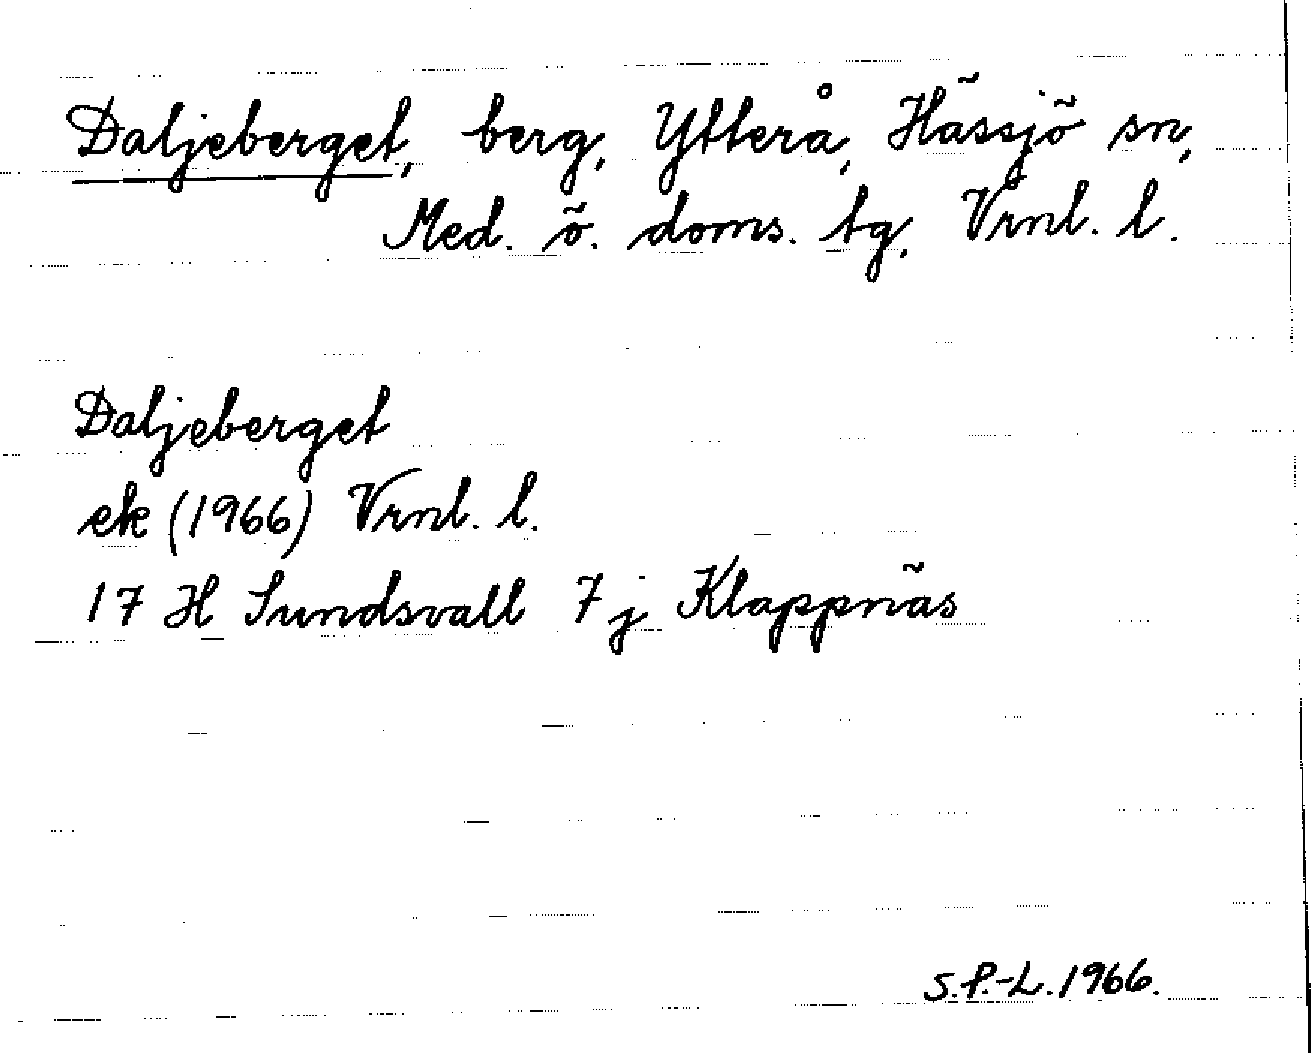 Daljeberget, berg, Ytterå, Hässjö sn,
Med. ö. doms. tg, Vrnl. l.
Daljeberget
ek (1966) Vrnl. l.
17 H Sundsvall 7 j Klappnäs
S.P.-L. 1966.